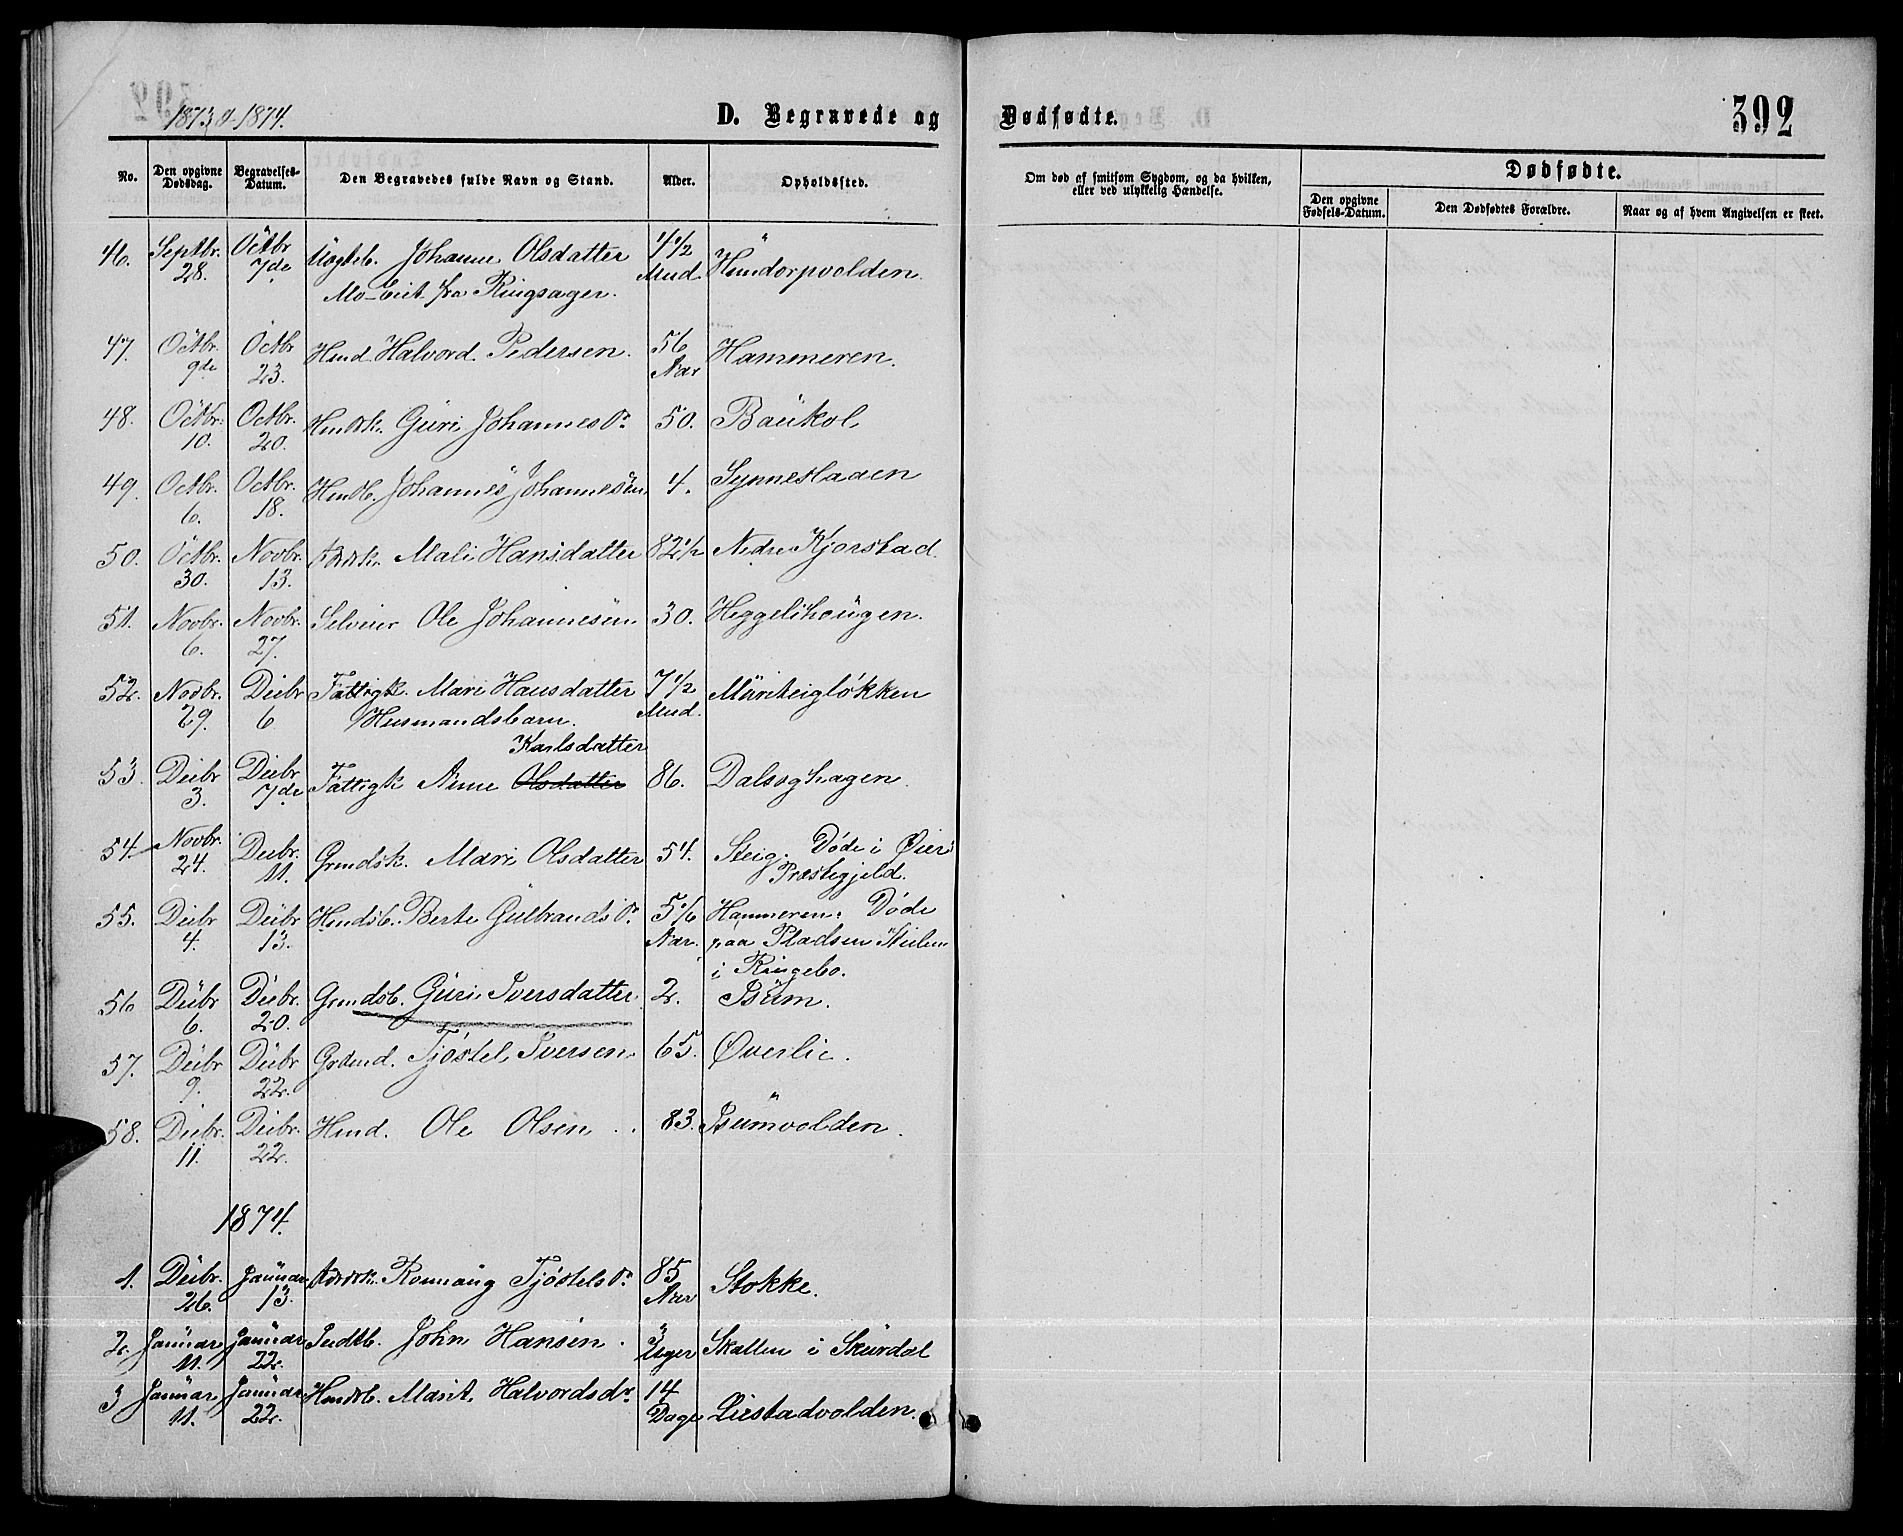 1873 o 1874.
D. Begravede og Dødfødte.
392
No.
Den opgivne Dødsdag.
Begravelses-Datum.
Den Begravedes fulde Navn og Stand.
Alder.
Opholdssted.
Om død af smitsom Sygdom, og da hvilken, eller ved ulykkelig Hændelse.
Dødfødte.
Den opgivne Fødsels-Datum.
Den Dødfødtes Forældre.
Naar og af hvem Angivelsen er skeet.
46. Septbr. 28. Octbr 7de Johanne Olsdatter fra Ringsager. 4 1/2 Mnd. Hundorpvolden.
47. Octbr. 9de Octbr 23. Hmd. Halvord Pedersen. 56 Aar Hammeren.
48. Octbr. 10. Octbr. 20. Hmdsk. Guri Johannesdr. 50. Baukol
49. Octbr. 6. Octbr. 18. Hmdb. Johannes Johannesen 4. Synneslaaen
50. Octbr. 30. Novbr. 13. Mali Hansdatter 82 1/2 Nedre Kjorstad.
51. Novbr. 6. Novbr. 27. Selveier Ole Johannesen 30. Heggelihougen.
52. Novbr. 29. Decbr 6 Fattigk. Mari Hansdatter 7 1/2 Mnd.
Husmandsbarn.
Karlsdatter
53. Decbr 3. Decbr 7de Fattigk Anne Olsdatter 86. Dalsoghagen.
54. Novbr. 24. Decbr. 11. Grmdsk. Mari Olsdatter 54. Steig. Døde i Øier
Præstegjeld.
55. Decbr 4. Decbr 13. Hmdsb. Berte Gulbrandsdr. 5/6 Aar. Hammeren. Døde
paa Pladsen
i Ringebo.
56 Decbr 6. Decbr. 20. Grmdsb. Guri Iversdatter. 2. Isum.
57. Decbr 9. Decbr 22. Grdmd. Tjøstel Iversen. 65. Øverlie.
58. Decbr. 11. Decbr. 22. Hmd. Ole Olsen 83. Isumvolden.
1874.
1. Decbr. 26. Januar 13. Ronnaug Tjøstelsdr. 85 Aar Stokke.
2. Januar 11. Januar 22. Indstb. John Hansen. 3 Uger Skatten i Skurdal
3 Januar 11. Januar 22. Hmdsb. Marit Halvordsdr. 14 Dage Liestadvolden.